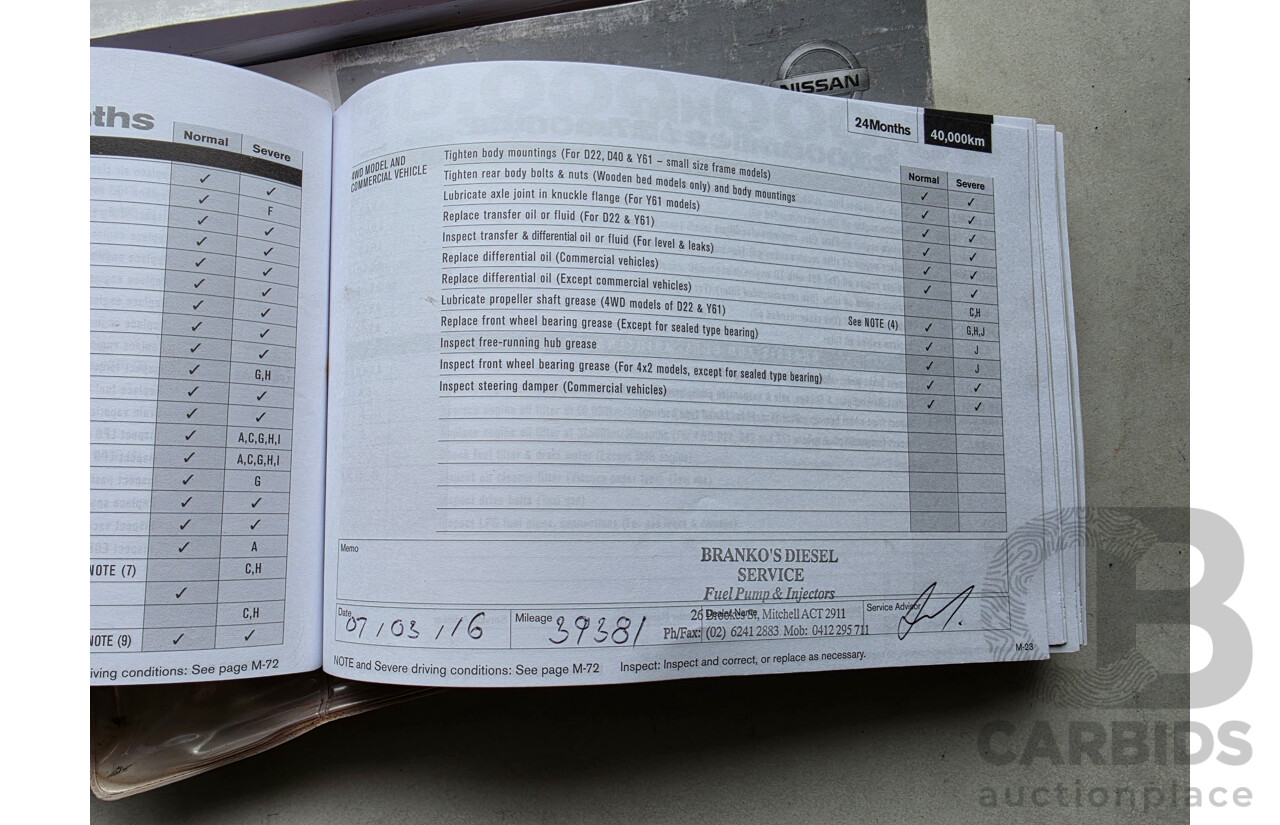 NISSAN
Normal
Severe
F
G,H
A,C,G,H,I
A,C,G,H,I
G
A
NOTE (7)
C,H
C,H
NOTE (9)
driving conditions: See page M-72
24Months
40,000km
4WD MODEL AND
COMMERCIAL VEHICLE
Normal
Severe
Tighten body mountings (For D22, D40 & Y61 – small size frame models)
Tighten rear body bolts & nuts (Wooden bed models only) and body mountings
Lubricate axle joint in knuckle flange (For Y61 models)
Replace transfer oil or fluid (For D22 & Y61)
Inspect transfer & differential oil or fluid (For level & leaks)
Replace differential oil (Commercial vehicles)
Replace differential oil (Except commercial vehicles)
C,H
Lubricate propeller shaft grease (4WD models of D22 & Y61) See NOTE (4)
G,H,J
Replace front wheel bearing grease (Except for sealed type bearing)
J
Inspect free-running hub grease
J
Inspect front wheel bearing grease (For 4x2 models, except for sealed type bearing)
Inspect steering damper (Commercial vehicles)
Memo
BRANKO'S DIESEL
SERVICE
Fuel Pump & Injectors
26 Brookes St, Mitchell ACT 2911
Ph/Fax: (02) 6241 2883 Mob: 0412 295 711
Date
07/03/16
Mileage
39381
Dealer Name
Service Advisor
M-23
NOTE and Severe driving conditions: See page M-72 Inspect: Inspect and correct, or replace as necessary.
CARBIDS
auctionplace